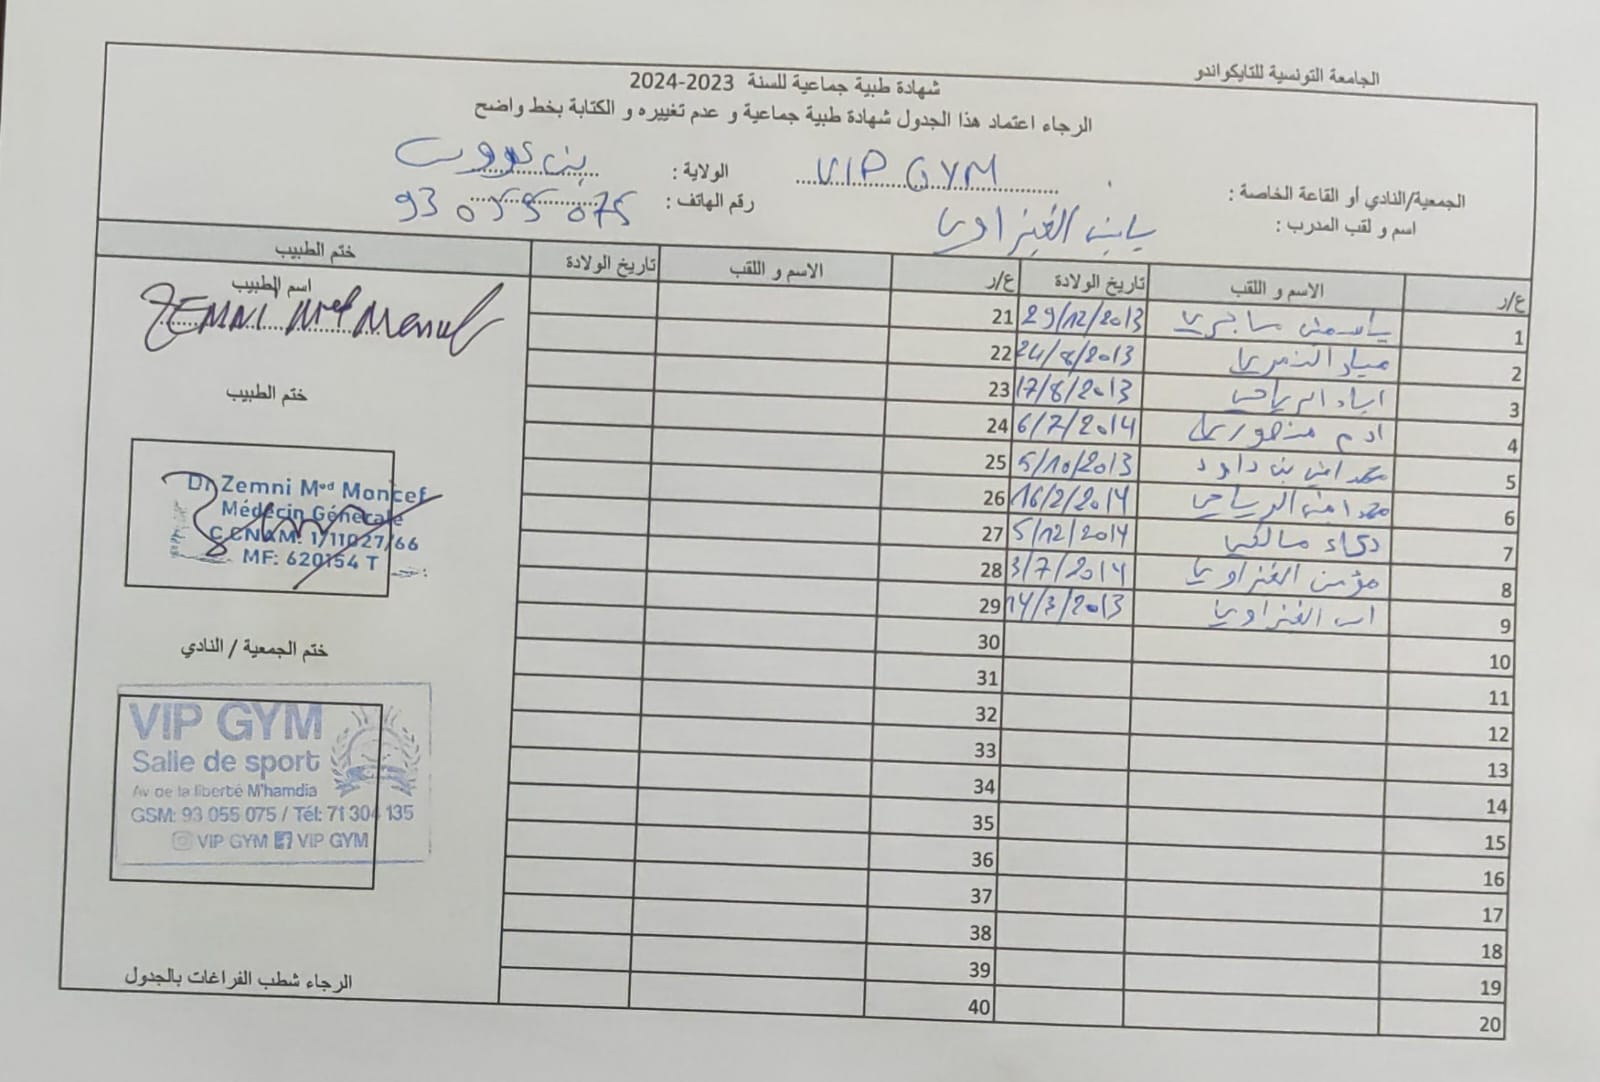 الجامعة التونسية للتايكواندو
شهادة طبية جماعية للسنة 2023-2024
الرجاء اعتماد هذا الجدول شهادة طبية جماعية و عدم تغييره و الكتابة بخط واضح
الجمعية/النادي أو القاعة الخاصة : VIP GYM الولاية : بن عروس
اسم و لقب المدرب : الغزاوي رقم الهاتف : 93 055 075
ع/ر الاسم و اللقب تاريخ الولادة ع/ر الاسم و اللقب تاريخ الولادة ختم الطبيب
1 ياسمين ساجري 29/12/2013 21
2 مياد 24/8/2013 22
3 اياد الرياحي 17/8/2013 23
4 ادم منصوري 6/7/2014 24
5 محمد امين بن داود 5/10/2013 25
6 محمد امين الرياحي 16/2/2014 26
7 دعاء مالكي 5/12/2014 27
8 مؤمن الغزاوي 3/7/2014 28
9 الغزاوي 14/3/2013 29
10 30
11 31
12 32
13 33
14 34
15 35
16 36
17 37
18 38
19 39
20 40
اسم الطبيب
ZEMNI Med Moncef
ختم الطبيب
Dr Zemni Med Moncef
Médecin Générale
C.CNAM: 1/11027/66
MF: 620154 T
ختم الجمعية / النادي
VIP GYM
Salle de sport
Av de la liberté M'hamdia
GSM: 93 055 075 / Tél: 71 304 135
VIP GYM VIP GYM
الرجاء شطب الفراغات بالجدول